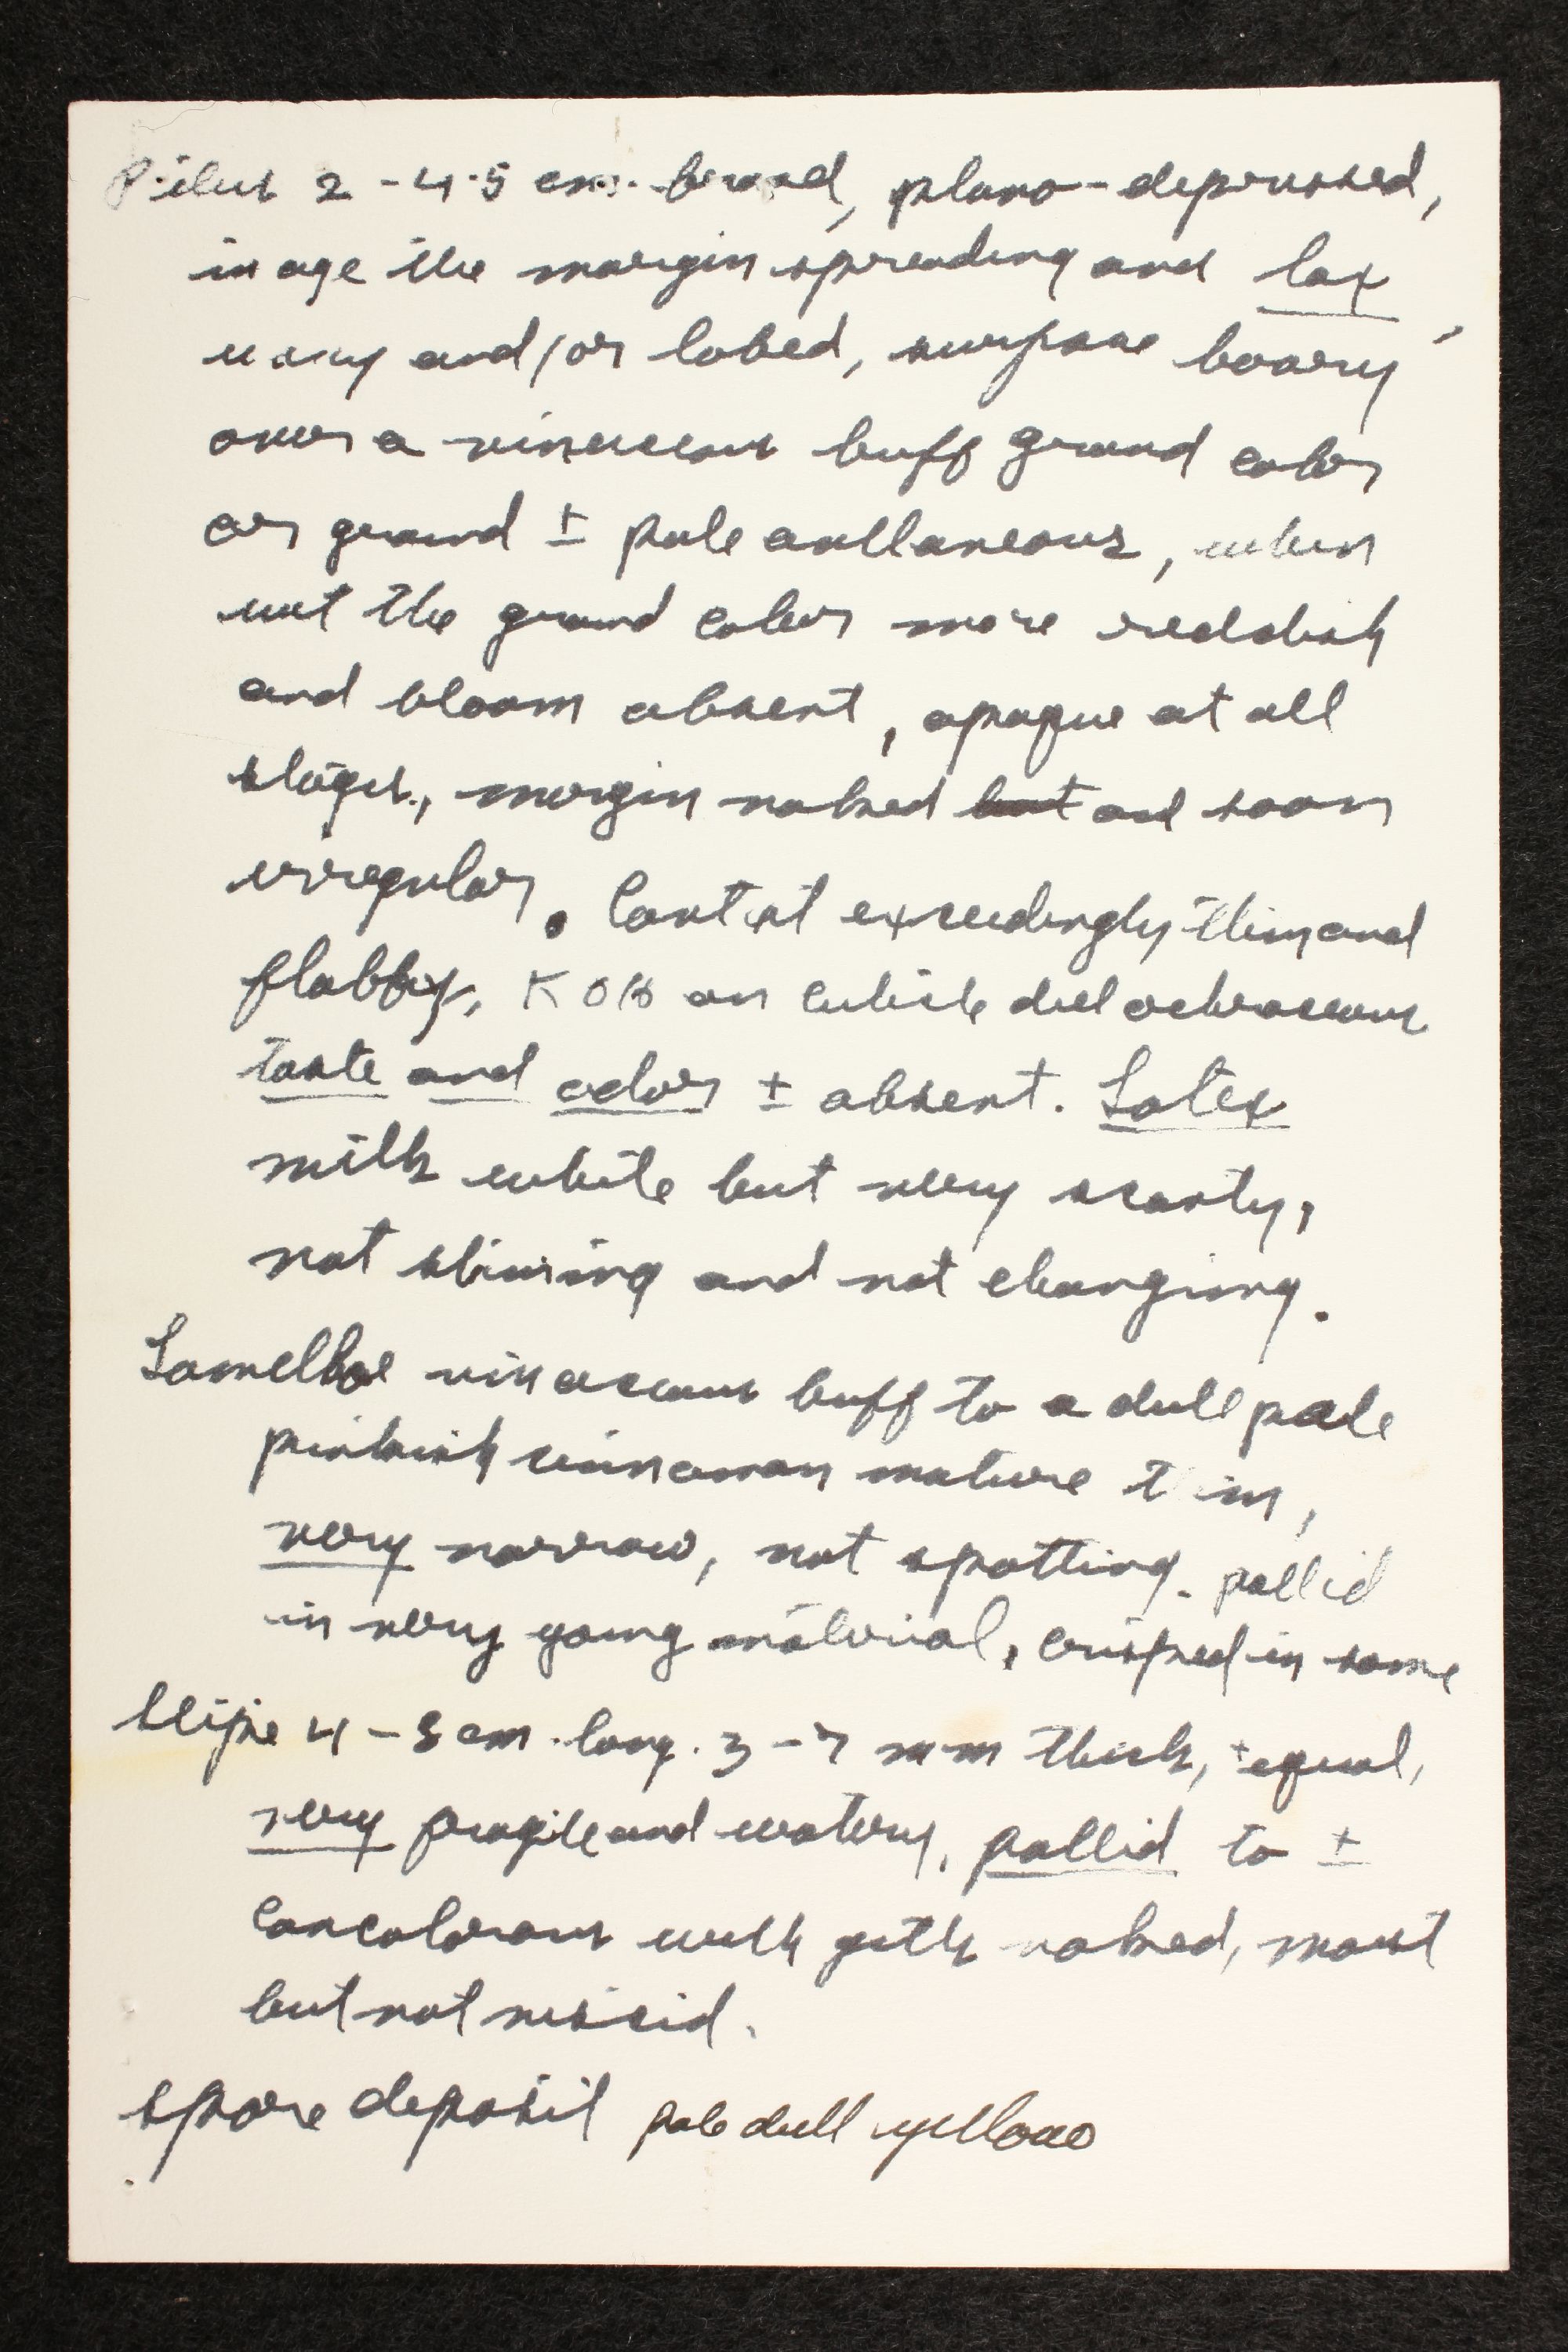 Pileus 2-4.5 cm. broad, plano-depressed,
in age the margin spreading and lax,
wavy and/or lobed, surface hoary
over a vinaceous buff ground color
or ground ± pale avellaneous, when
wet the ground color more reddish
and bloom absent, opaque at all
stages, margin naked but and soon
irregular. Context exceedingly thin and
flabby, KOH on cuticle dull ochraceous
taste and odor ± absent. Latex
milk white but very scanty,
not staining and not changing.
Lamellae vinaceous buff to a dull pale
pinkish cinnamon mature thin,
very narrow, not spotting. pallid
in very young material, crisped in some
Stipe 4-8 cm. long. 3-7 mm thick, ± equal,
very fragile and watery, pallid to ±
concolorous with gills naked, moist
but not viscid.
spore deposit pale dull yellow